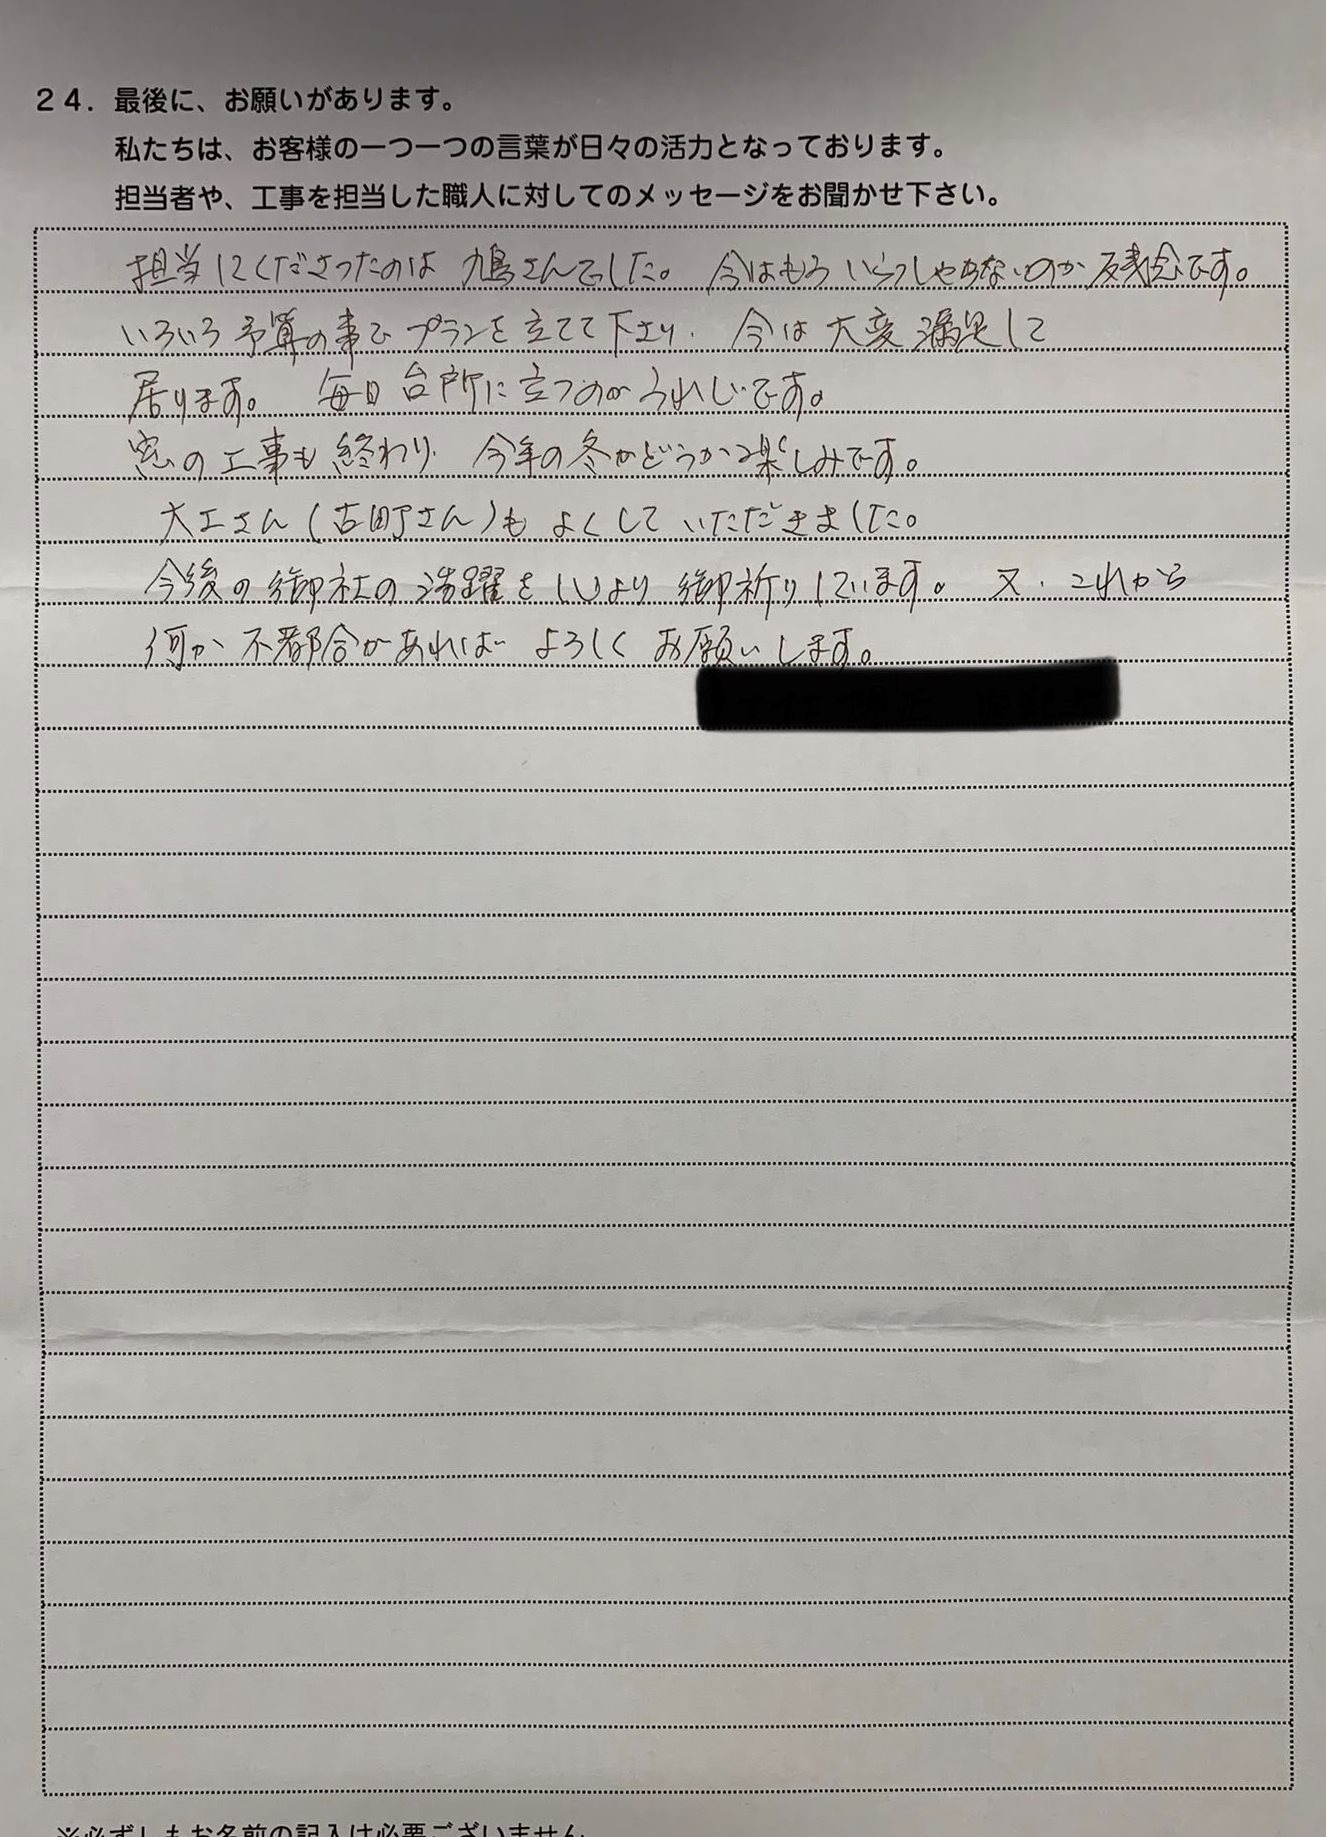 24. 最後に、お願いがあります。
私たちは、お客様の一つ一つの言葉が日々の活力となっております。
担当者や、工事を担当した職人に対してのメッセージをお聞かせ下さい。
担当してくださったのは 九鳥さんでした。 今はもう いらっしゃらないのが 残念です。
いろいろ 予算の事で プランを 立てて 下さり、 今は 大変 満足して
居ります。 毎日 台所に 立つのが うれしいです。
窓の 工事も 終わり、 今年の 冬がどうか 楽しみです。
大工さん(古町さん)も よくして いただきました。
今後の 御社の 活躍を 心より 御祈りしています。 又、これから
何か 不都合があれば よろしく お願いします。
※必ずしもお名前の記入は必要ございません